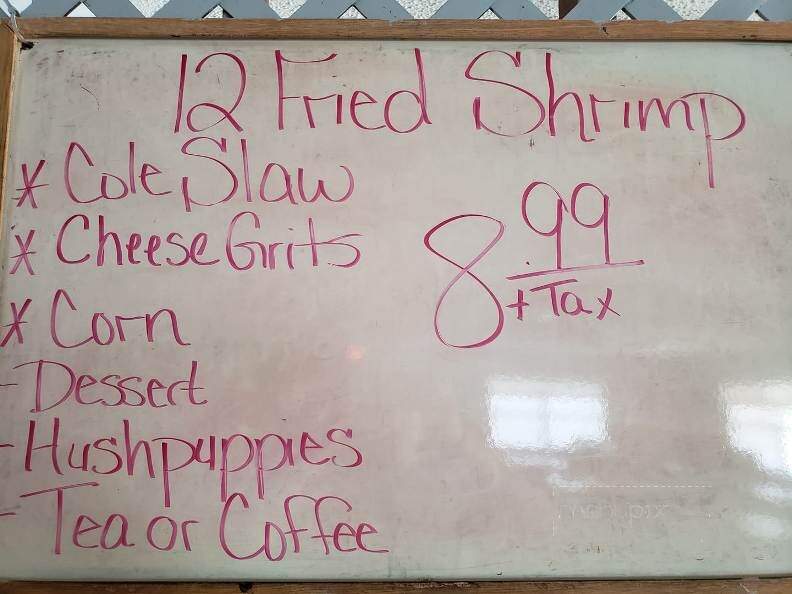 12 Fried Shrimp
* Cole Slaw
* Cheese Grits
* Corn
- Dessert
- Hushpuppies
- Tea or Coffee
8 .99
+ Tax